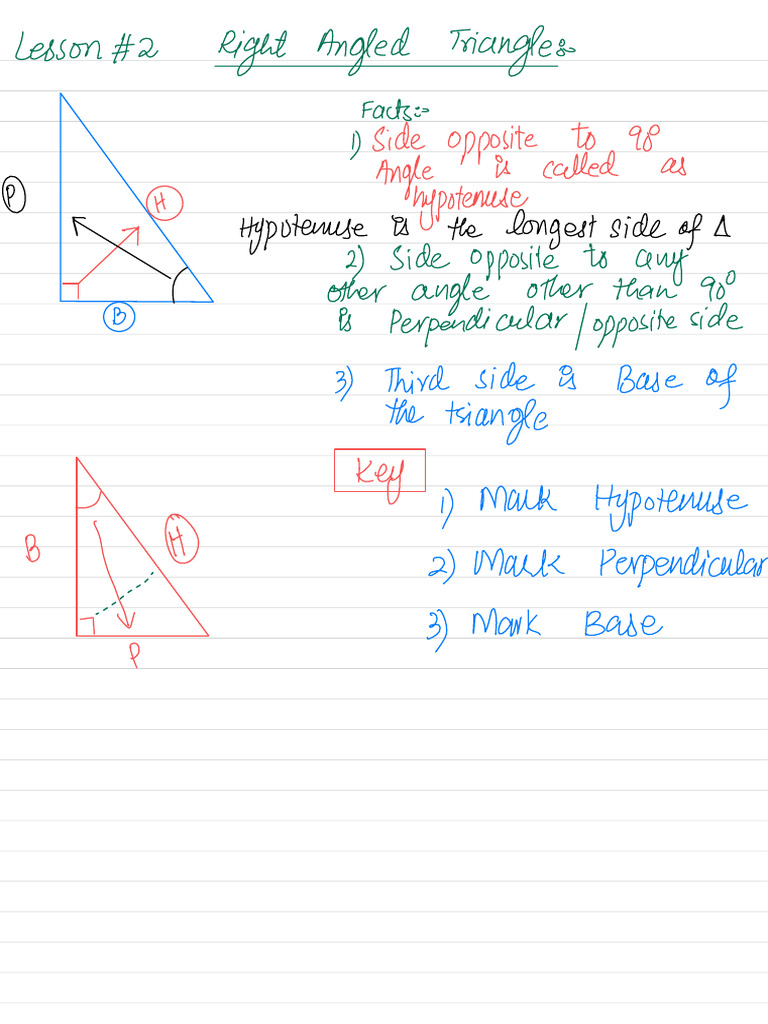 Lesson #2 Right Angled Triangles
Facts:-
1) Side opposite to 90°
Angle is called as
hypotenuse
P
H
Hypotenuse is the longest side of Δ
2) Side opposite to any
other angle other than 90°
is Perpendicular/opposite side
B
3) Third side is Base of
the triangle
Key
1) Mark Hypotenuse
B
H
2) Mark Perpendicular
3) Mark Base
P